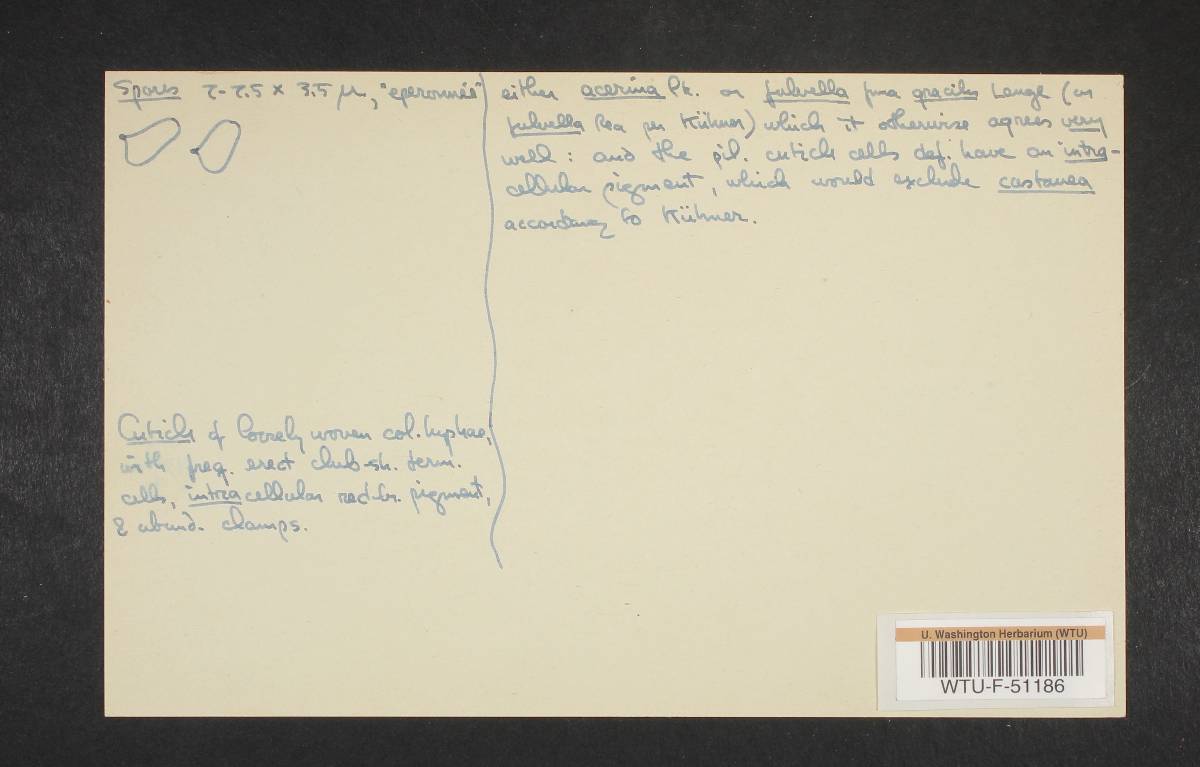 Spores 7-7.5 × 3.5 μ, "eperonnée"
Cuticle of loosely woven col. hyphae,
with freq. erect club-sh. term.
cells, intracellular red-br. pigment,
& abund. clamps.
either acerina Pk. or fulvella fma gracilis Lange (or
fulvella Rea per Kühner) which it otherwise agrees very
well: and the pil. cuticle cells def. have an intra-
cellular pigment, which would exclude castanea
according to Kühner.
U. Washington Herbarium (WTU)
WTU-F-51186